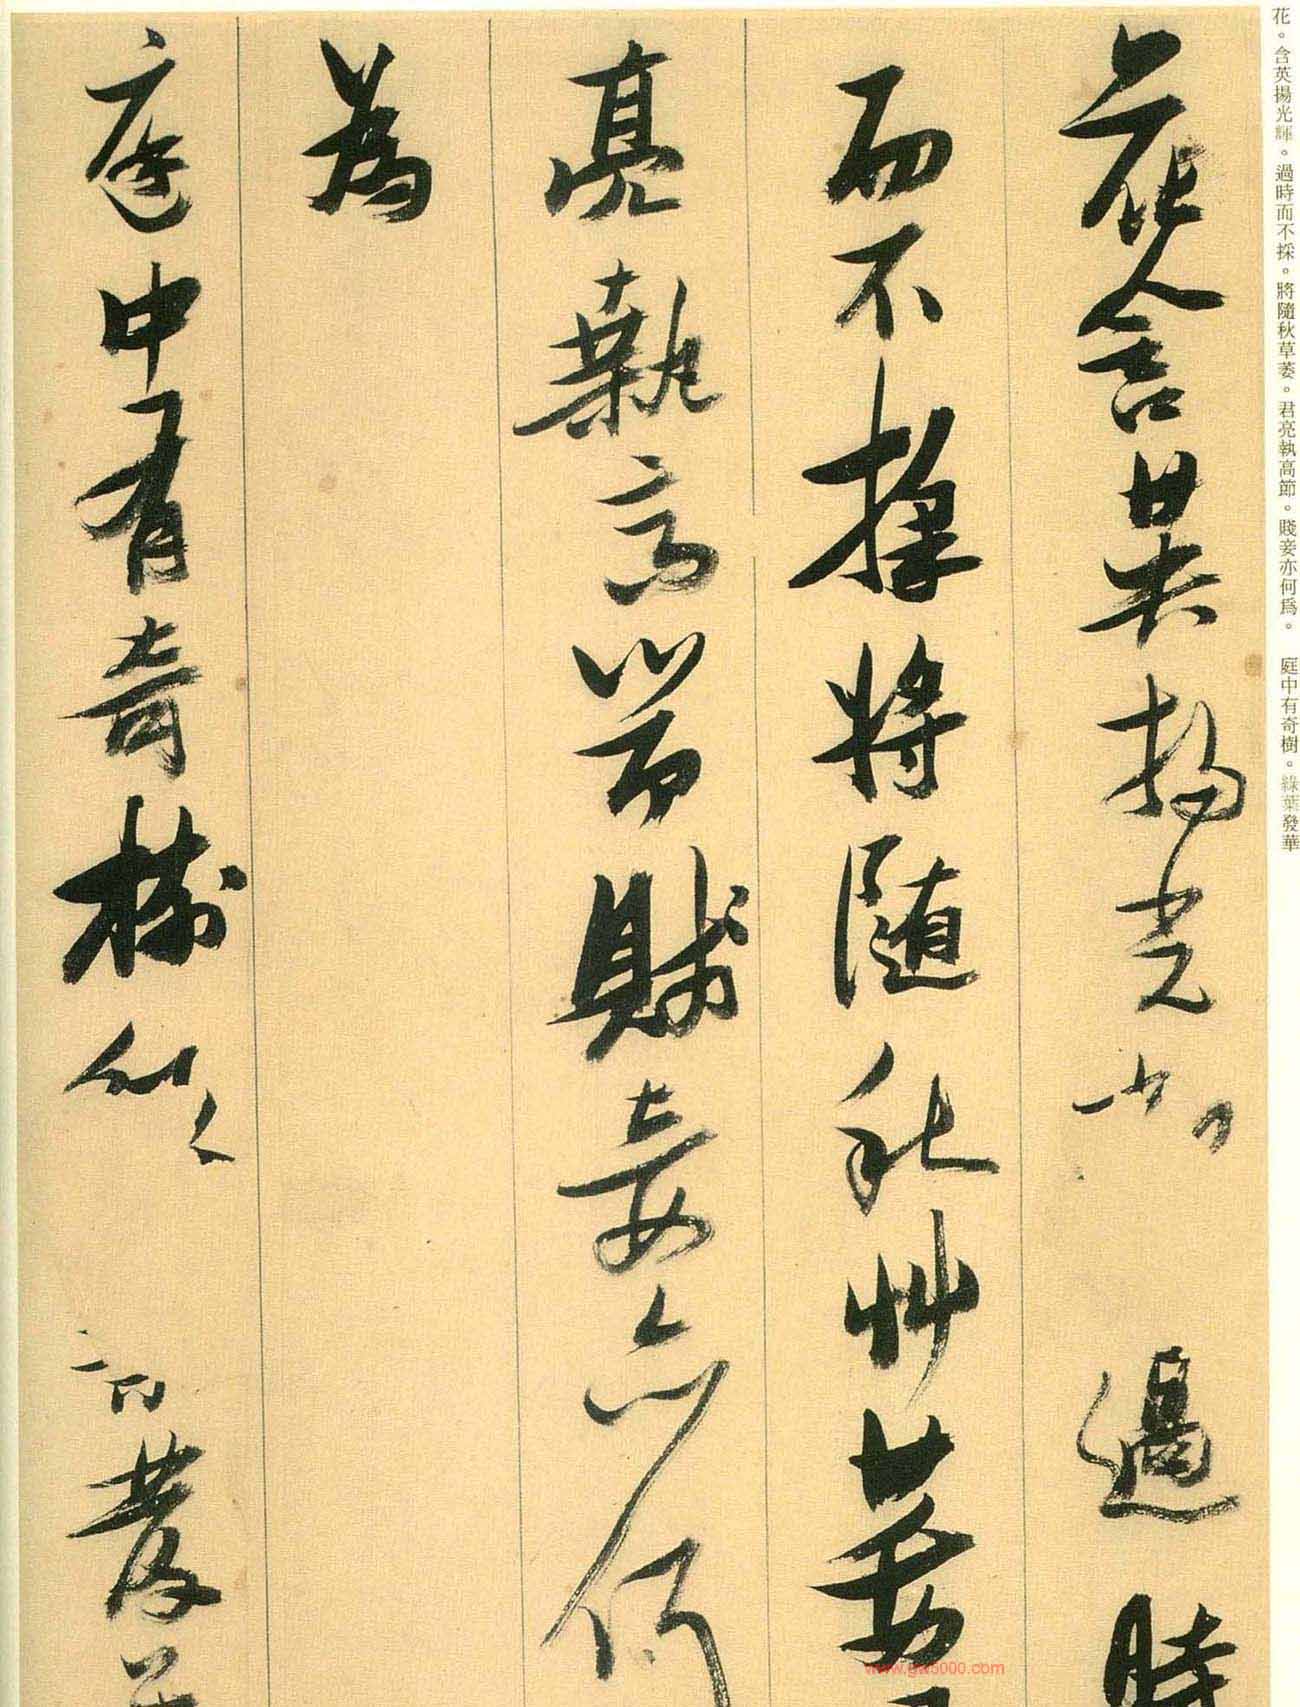 花含英揚光 過時
而不採將隨秋艸萎
亮執高節賤妾亦何
為
庭中有奇樹 發
花。含英揚光輝。過時而不採。將隨秋草萎。君亮執高節。賤妾亦何爲。　庭中有奇樹。綠葉發華
www.gm5000.com